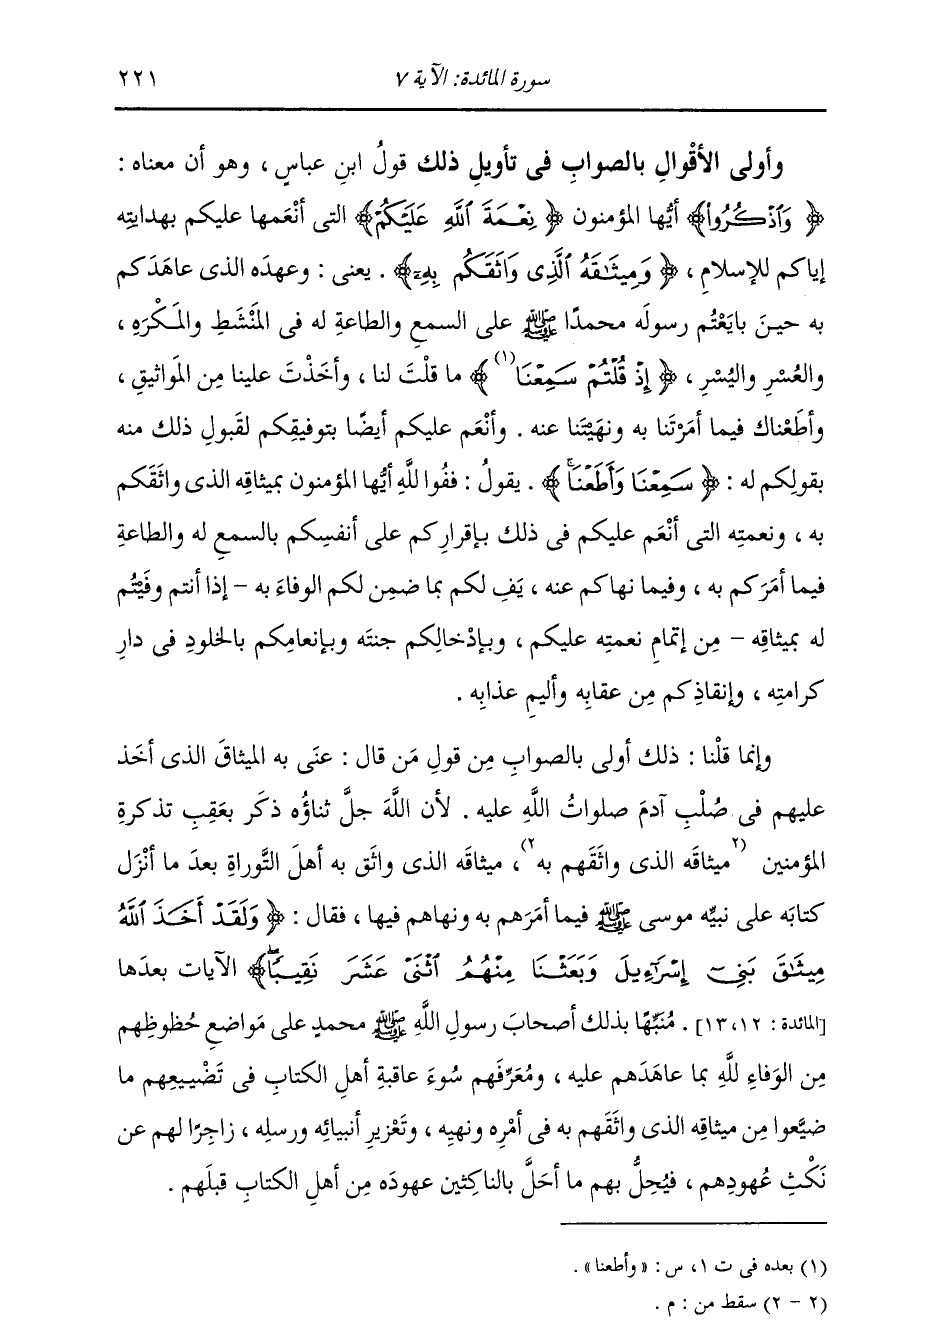 سورة المائدة: الآية ٧ ٢٢١
وأولى الأقْوالِ بالصوابِ فى تأويلِ ذلك قولُ ابنِ عباسٍ ، وهو أن معناه :
﴿ وَٱذْكُرُوا۟﴾ أيُّها المؤمنون ﴿ نِعْمَةَ ٱللَّهِ عَلَيْكُمْ﴾ التى أنْعَمها عليكم بهدايتِه
إياكم للإسلامِ ، ﴿ وَمِيثَٰقَهُ ٱلَّذِى وَاثَقَكُم بِهِۦٓ﴾ . يعنى : وعهدَه الذى عاهَدَكم
به حينَ بايَعْتُم رسولَه محمدًا ﷺ على السمعِ والطاعةِ له فى المَنْشَطِ والمَكْرَهِ ،
والعُسْرِ واليُسْرِ ، ﴿ إِذْ قُلْتُمْ سَمِعْنَا(١) ﴾ ما قلْتَ لنا ، وأخَذْتَ علينا مِن المَواثيقِ ،
وأطَعْناك فيما أمَرْتَنا به ونهَيْتَنا عنه . وأنْعَم عليكم أيضًا بتوفيقِكم لقَبولِ ذلك منه
بقولِكم له : ﴿ سَمِعْنَا وَأَطَعْنَاۖ ﴾ . يقولُ : ففُوا للَّهِ أيُّها المؤمنون بميثاقِه الذى واثَقَكم
به ، ونعمتِه التى أنْعَم عليكم فى ذلك بإقرارِكم على أنفسِكم بالسمعِ له والطاعةِ
فيما أمَرَكم به ، وفيما نهاكم عنه ، يَفِ لكم بما ضمِن لكم الوفاءَ به - إذا أنتم وفَيْتُم
له بميثاقِه - مِن إتمامِ نعمتِه عليكم ، وبإدْخالِكم جنتَه وبإنعامِكم بالخلودِ فى دارِ
كرامتِه ، وإنقاذِكم مِن عقابِه وأليمِ عذابِه .
وإنما قلْنا : ذلك أولى بالصوابِ مِن قولِ مَن قال : عنَى به الميثاقَ الذى أخَذ
عليهم فى صُلْبِ آدمَ صلواتُ اللَّهِ عليه . لأن اللَّهَ جلَّ ثناؤُه ذكَر بعَقِبِ تذكرةِ
المؤمنين (٢ميثاقَه الذى واثَقَهم به٢)، ميثاقَه الذى واثَق به أهلَ التَّوراةِ بعدَ ما أنْزَل
كتابَه على نبيِّه موسى ﷺ فيما أمَرَهم به ونهاهم فيها ، فقال : ﴿ وَلَقَدْ أَخَذَ ٱللَّهُ
مِيثَٰقَ بَنِىٓ إِسْرَٰٓءِيلَ وَبَعَثْنَا مِنْهُمُ ٱثْنَىْ عَشَرَ نَقِيبًاۖ﴾ الآيات بعدَها
[المائدة : ١٢، ١٣] . مُنَبِّهًا بذلك أصحابَ رسولِ اللَّهِ ﷺ محمدٍ على مَواضعِ حُظوظِهم
مِن الوَفاءِ للَّهِ بما عاهَدَهم عليه ، ومُعَرِّفَهم سُوءَ عاقبةِ أهلِ الكتابِ فى تَضْييعِهم ما
ضيَّعوا مِن ميثاقِه الذى واثَقَهم به فى أمْرِه ونهيِه ، وتَعْزيرِ أنبيائِه ورسلِه ، زاجِرًا لهم عن
نَكْثِ عُهودِهم ، فيُحِلُّ بهم ما أحَلَّ بالناكِثين عهودَه مِن أهلِ الكتابِ قبلَهم .
(١) بعده فى ت ١، س : « وأطعنا » .
(٢ - ٢) سقط من : م .